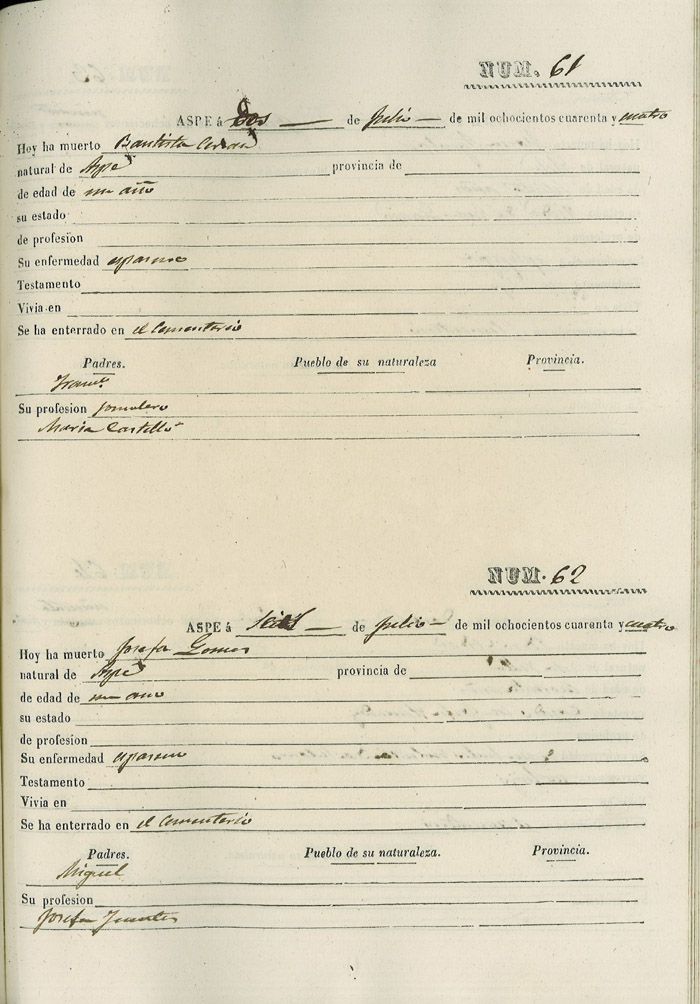 NUM. 61
ASPE á Dos de Julio de mil ochocientos cuarenta y cuatro
Hoy ha muerto Bautista
natural de Aspe provincia de
de edad de un año
su estado
de profesion
Su enfermedad
Testamento
Vivia en
Se ha enterrado en el Cementerio
Padres. Pueblo de su naturaleza Provincia.
Franco.
Su profesion jornalero
Maria Castelló
NUM. 62
ASPE á seis de Julio de mil ochocientos cuarenta y cuatro
Hoy ha muerto Josefa Gomes
natural de Aspe provincia de
de edad de un año
su estado
de profesion
Su enfermedad
Testamento
Vivia en
Se ha enterrado en el Cementerio
Padres. Pueblo de su naturaleza. Provincia.
Miguel
Su profesion
Josefa